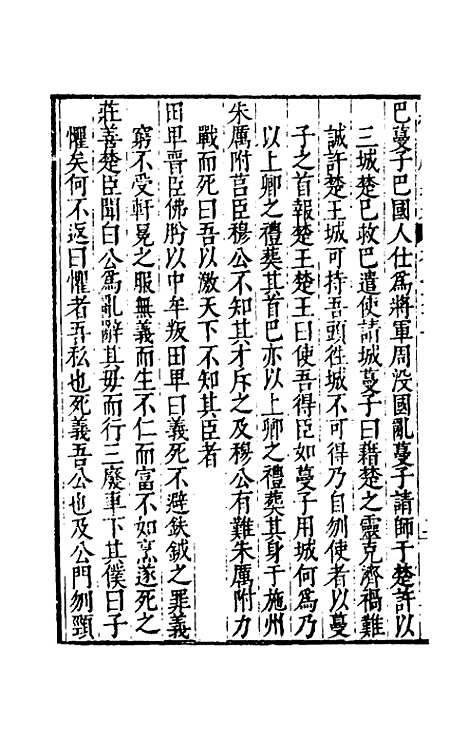 巴蔓子巴國人仕爲將軍周没國亂蔓子請師于楚許以
三城楚已救巴遣使請城蔓子曰藉楚之靈克濟禍難
誠許楚王城可持吾頭徃城不可得乃自刎使者以蔓
子之首報楚王楚王曰使吾得臣如蔓子用城何爲乃
以上卿之禮葬其首巴亦以上卿之禮葬其身于施州
朱厲附莒臣穆公不知其才斥之及穆公有難朱厲附力
戰而死曰吾以激天下不知其臣者
田卑晋臣佛肸以中牟叛田卑曰義死不避鈇鉞之罪義
窮不受軒冕之服無義而生不仁而富不如烹遂死之
莊善楚臣聞白公爲亂辭其母而行三廢車下其僕曰子
懼矣何不返曰懼者吾私也死義吾公也及公門刎頸